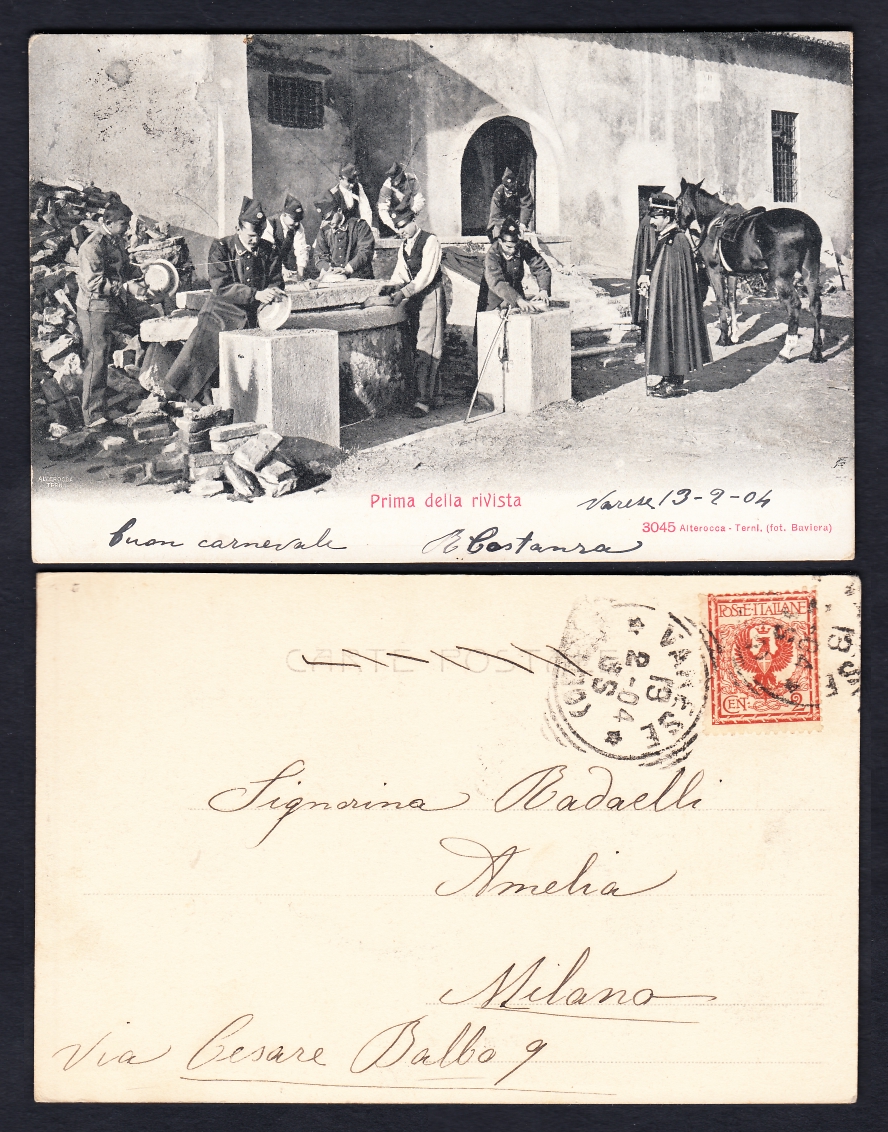 ALTEROCCA
TERNI
Prima della rivista
Varese 13-2-04
3045 Alterocca - Terni. (fot. Baviera)
buon carnevale R Costanza
CARTE POSTALE
VARESE
13
2-04
8S
POSTE·ITALIANE
CEN: 2
Signorina Radaelli
Amelia
Milano
Via Cesare Balbo 9